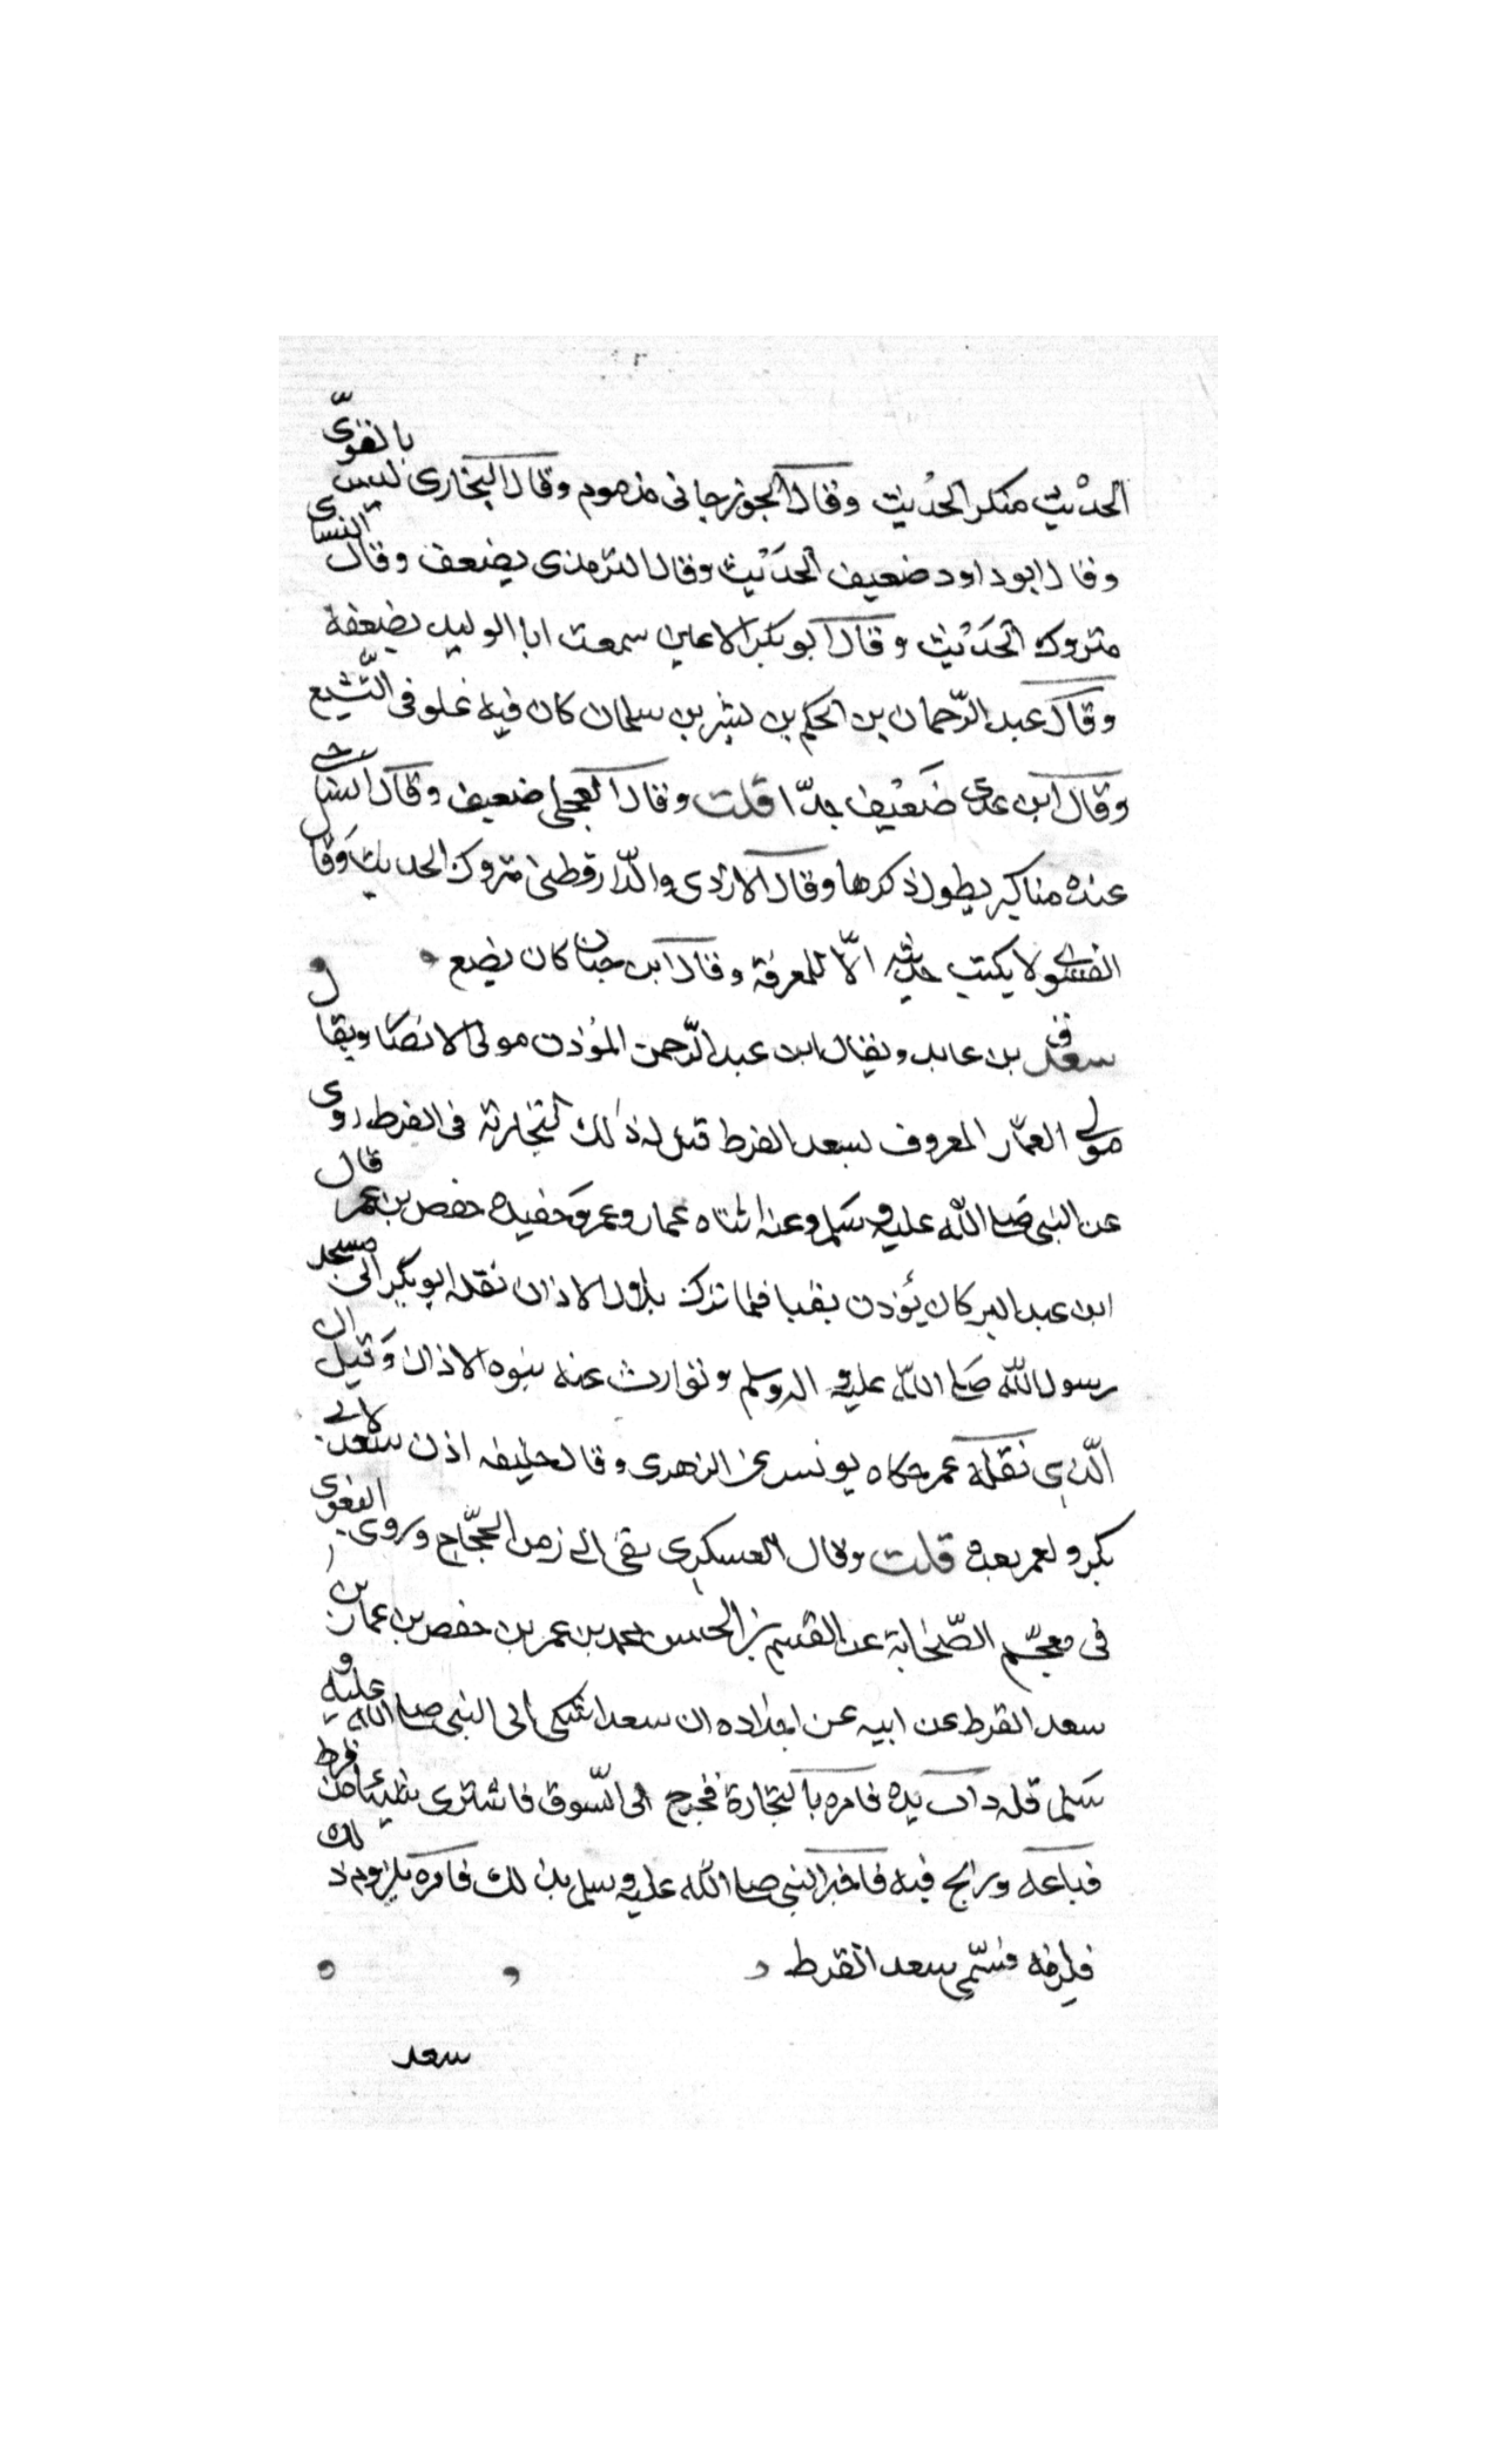 الحدیث منكر الحدیث وقال الجوزجانی مذموم وقال البخاری لیس بالقوّی
وقال ابو داود ضعیف الحدیث وقال الترمذی یضعف وقال النسای
متروك الحدیث وقال ابو بكر الاعین سمعت ابا الولید یضعفه
وقال عبد الرّحمان بن الحكم بن بشیر بن سلمان كان فیه غلو فی التّشیع
وقال ابن عدی ضعیف جدّا قلت وقال العجلی ضعیف وقال الساجی
عنده مناكیر یطول ذكرها وقال الازدی والدّارقطنی متروك الحدیث وقال
الفسوی لا یكتب حدیثه الّا للمعرفة وقال ابن حبان كان یضع
سعد بن عاید ویقال ابن عبد الرّحمن المؤذن مولی الانصار ویقال
مولی العمّار المعروف بسعد القرظ قیل له ذلك لتجارته فی القرط روی
عن النبی صلی الله علیه وسلم وعنه ابناه عمار وعمر وحفیده حفص بن عمر قال
ابن عبد البر كان یؤذن بقبا فلما ترك بلال الاذان نقله ابو بكر الی مسجد
رسول الله صلی الله علیه واله وسلم وتوارث عنه بنوه الاذان وقیل ان
الّذی نقله عمر حكاه یونس عن الزهری وقال خلیفه اذن سعد لابی
بكر ولعمر بعده قلت وقال العسكری بقی الی زمن الحجّاج وروی البغوی
فی معجم الصّحابة عن القسم بن الحسن محمد بن عمر بن حفص بن عمار بن
سعد القرط عن ابیه عن اجداده ان سعدا شكی الی النبی صلی الله علیه و
سلم قله ذات یده فامره بالتجارة فخرج الی السّوق فاشتری شیئا من قرط
فباعه وربح فیه فاخبر النبی صلی الله علیه وسلم بذلك فامره بلزوم ذلك
فلزمه فسّمی سعد القرط
سعد